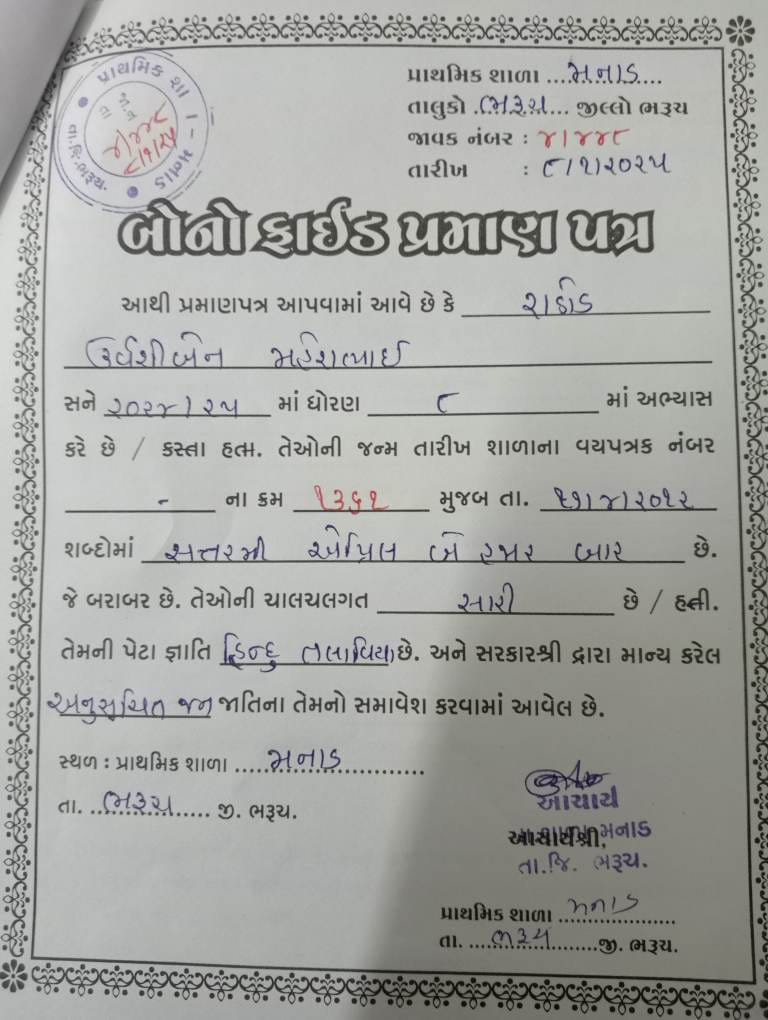 પ્રાથમિક શાળા - મનાડ
તા.જિ.ભરૂચ.
૪/૪૪૮
૮/૧/૨૫
પ્રાથમિક શાળા ...મનાડ....
તાલુકો .ભરૂચ... જીલ્લો ભરૂચ
જાવક નંબર : ૪/૪૪૮
તારીખ : ૮/૧/૨૦૨૫
બોનોફાઈડ પ્રમાણ પત્ર
આથી પ્રમાણપત્ર આપવામાં આવે છે કે રાઠોડ
ઉર્વશીબેન મહેશભાઈ
સને ૨૦૨૪/૨૫ માં ધોરણ ૮ માં અભ્યાસ
કરે છે / કરતા હતા. તેઓની જન્મ તારીખ શાળાના વયપત્રક નંબર
- ના ક્રમ ૧૩૬૧ મુજબ તા. ૧૭/૪/૨૦૧૨
શબ્દોમાં સત્તરમી એપ્રિલ બે હજાર બાર છે.
જે બરાબર છે. તેઓની ચાલચલગત સારી છે / હતી.
તેમની પેટા જ્ઞાતિ હિન્દુ તલાવિયા છે. અને સરકારશ્રી દ્વારા માન્ય કરેલ
અનુસૂચિત જન જાતિના તેમનો સમાવેશ કરવામાં આવેલ છે.
સ્થળ : પ્રાથમિક શાળા ....મનાડ............
તા. ...ભરૂચ..... જી. ભરૂચ.
આચાર્ય
આચાર્યશ્રી,
શાળા મનાડ
તા.જિ. ભરૂચ.
પ્રાથમિક શાળા ..મનાડ......
તા. ....ભરૂચ........જી. ભરૂચ.